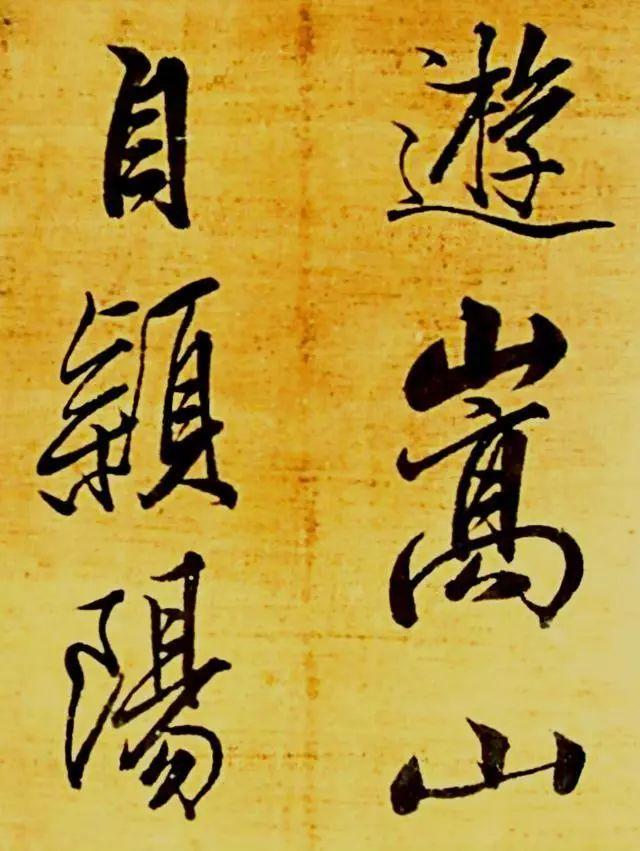 遊嵩山
自潁陽